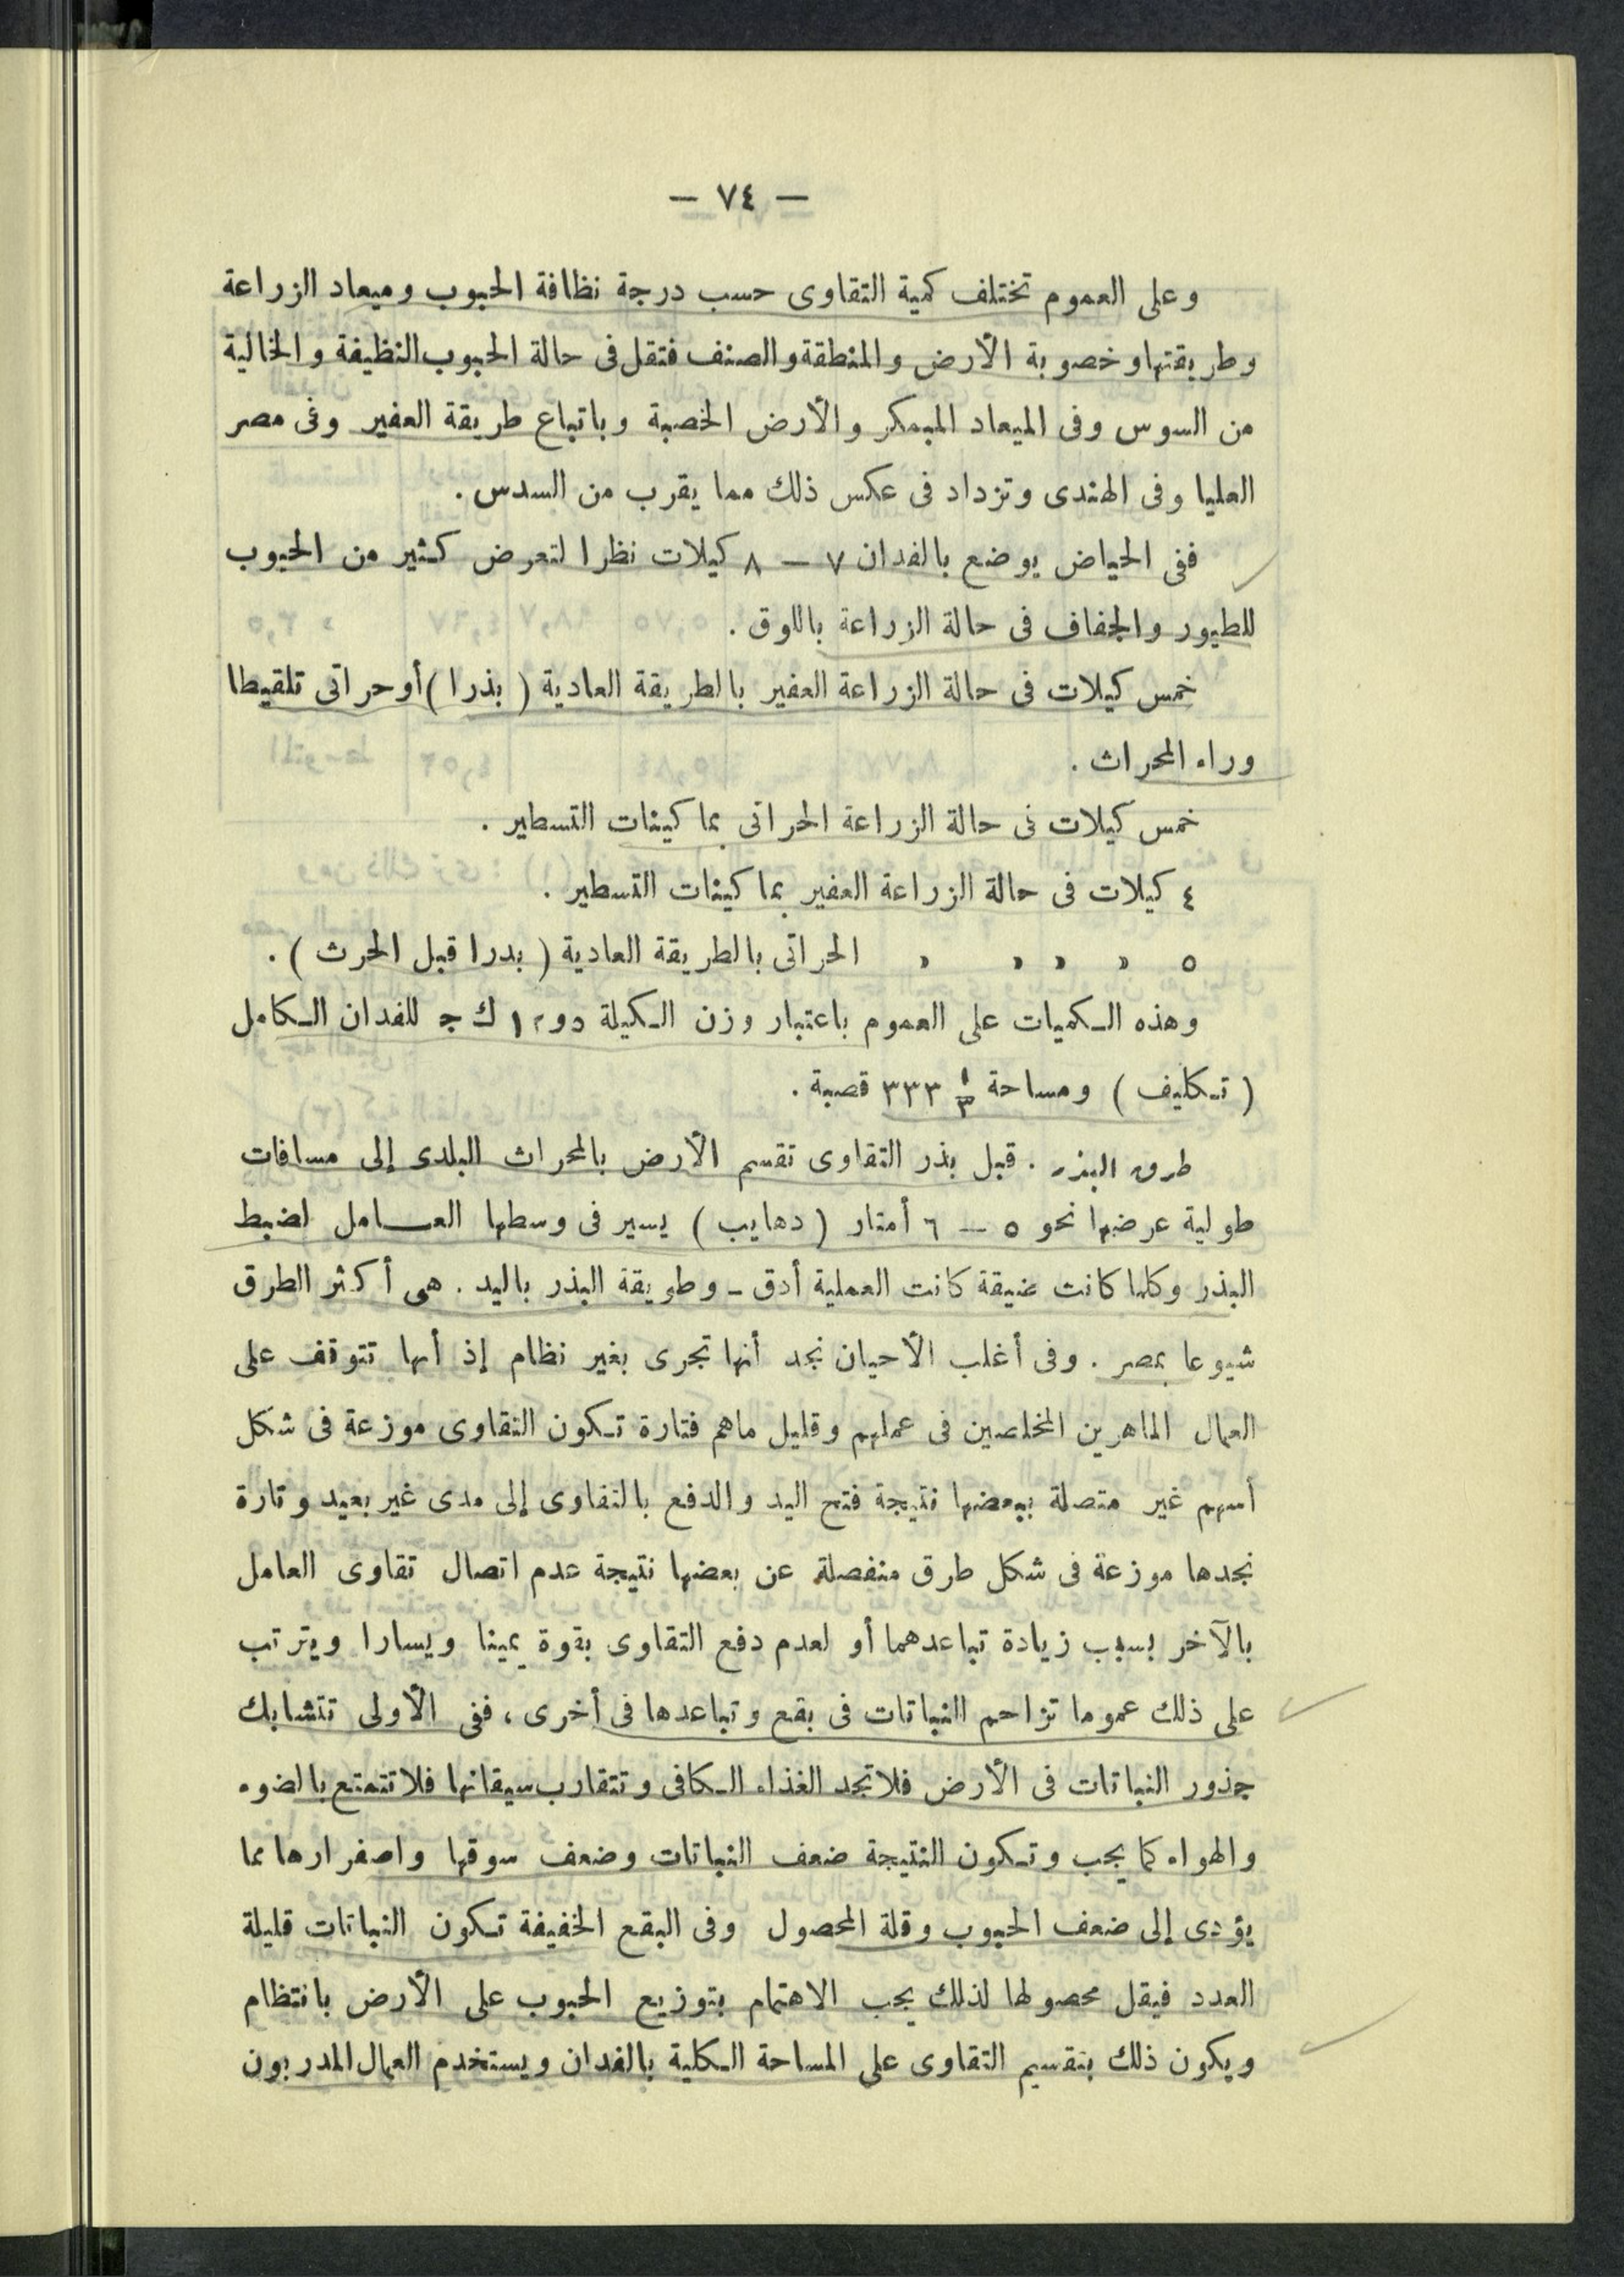 — ٧٤ —
وعلى العموم تختلف كمية التقاوى حسب درجة نظافة الحبوب وميعاد الزراعة
وطريقتها وخصوبة الأرض والمنطقة والصنف فتقل فى حالة الحبوب النظيفة والخالية
من السوس وفى الميعاد المبكر والأرض الخصبة وباتباع طريقة العفير وفى مصر
العليا وفى الهندى وتزداد فى عكس ذلك مما يقرب من السدس .
ففى الحياض يوضع بالفدان ٧ — ٨ كيلات نظرا لتعرض كثير من الحبوب
للطيور والجفاف فى حالة الزراعة باللوق .
خمس كيلات فى حالة الزراعة العفير بالطريقة العادية ( بذرا ) أو حراتى تلقيطا
وراء المحراث .
خمس كيلات فى حالة الزراعة الحراتى بماكينات التسطير .
٤ كيلات فى حالة الزراعة العفير بماكينات التسطير .
٥ » » » » الحراتى بالطريقة العادية ( بدرا قبل الحرث ) .
وهذه الكميات على العموم باعتبار وزن الكيلة ك ج للفدان الكامل
( تكليف ) ومساحة ١/٣ ٣٣٣ قصبة .
طرق البذر . قبل بذر التقاوى تقسم الأرض بالمحراث البلدى إلى مسافات
طولية عرضها نحو ٥ — ٦ أمتار ( دهايب ) يسير فى وسطها العامل لضبط
البذر وكلما كانت ضيقة كانت العملية أدق - وطريقة البذر باليد . هى أكثر الطرق
شيوعا بمصر . وفى أغلب الأحيان نجد أنها تجرى بغير نظام إذ أنها تتوقف على
العمال الماهرين المخلصين فى عملهم وقليل ماهم فتارة تكون التقاوى موزعة فى شكل
أسهم غير متصلة ببعضها نتيجة فتح اليد والدفع بالتقاوى إلى مدى غير بعيد وتارة
نجدها موزعة فى شكل طرق منفصلة عن بعضها نتيجة عدم اتصال تقاوى العامل
بالآخر بسبب زيادة تباعدهما أو لعدم دفع التقاوى بقوة يمينا ويسارا ويترتب
على ذلك عموما تزاحم النباتات فى بقع وتباعدها فى أخرى ، ففى الأولى تتشابك
جذور النباتات فى الأرض فلا تجد الغذاء الكافى وتتقارب سيقانها فلا تتمتع بالضوء
والهواء كما يجب وتكون النتيجة ضعف النباتات وضعف سوقها واصفرارها مما
يؤدى إلى ضعف الحبوب وقلة المحصول وفى البقع الخفيفة تكون النباتات قليلة
العدد فيقل محصولها لذلك يجب الاهتمام بتوزيع الحبوب على الأرض بانتظام
ويكون ذلك بتقسيم التقاوى على المساحة الكلية بالفدان ويستخدم العمال المدربون